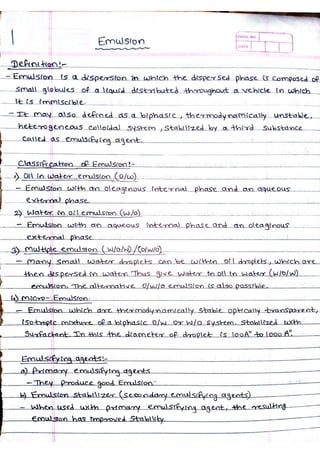 1
Emulsion
PAGE NO.
DATE
Definition:-
- Emulsion is a dispersion in which the dispersed phase is composed of
small globules of a liquid distributed throughout a vehicle in which
it is immiscible.
- It may also defined as a biphasic, thermodynamically unstable,
heterogeneous colloidal system, stabilized by a third substance
called as emulsifying agent.
Classification of Emulsion:-
1) Oil in water emulsion (O/W)
- Emulsion with an oleaginous internal phase and an aqueous
external phase.
2) Water in oil emulsion (W/O)
- Emulsion with an aqueous internal phase and an oleaginous
external phase.
3) Multiple emulsion (W/O/W)/(O/W/O)
- Many small water droplets can be within oil droplets, which are
then dispersed in water. Thus give water in oil in water (W/O/W)
emulsion. The alternative O/W/O emulsion is also possible.
4) Micro- Emulsion
- Emulsion which are thermodynamically stable optically transparent,
isotropic mixture of a biphasic O/W or W/O system. Stabilized with
Surfactant. In this the diameter of droplet is 100A° to 1000 A°.
Emulsifying agents:-
a) Primary emulsifying agents
- They produce good Emulsion
b) Emulsion stabilizer (secondary emulsifying agents)
- When used with primary emulsifying agent, the resulting
emulsion has improved stability.